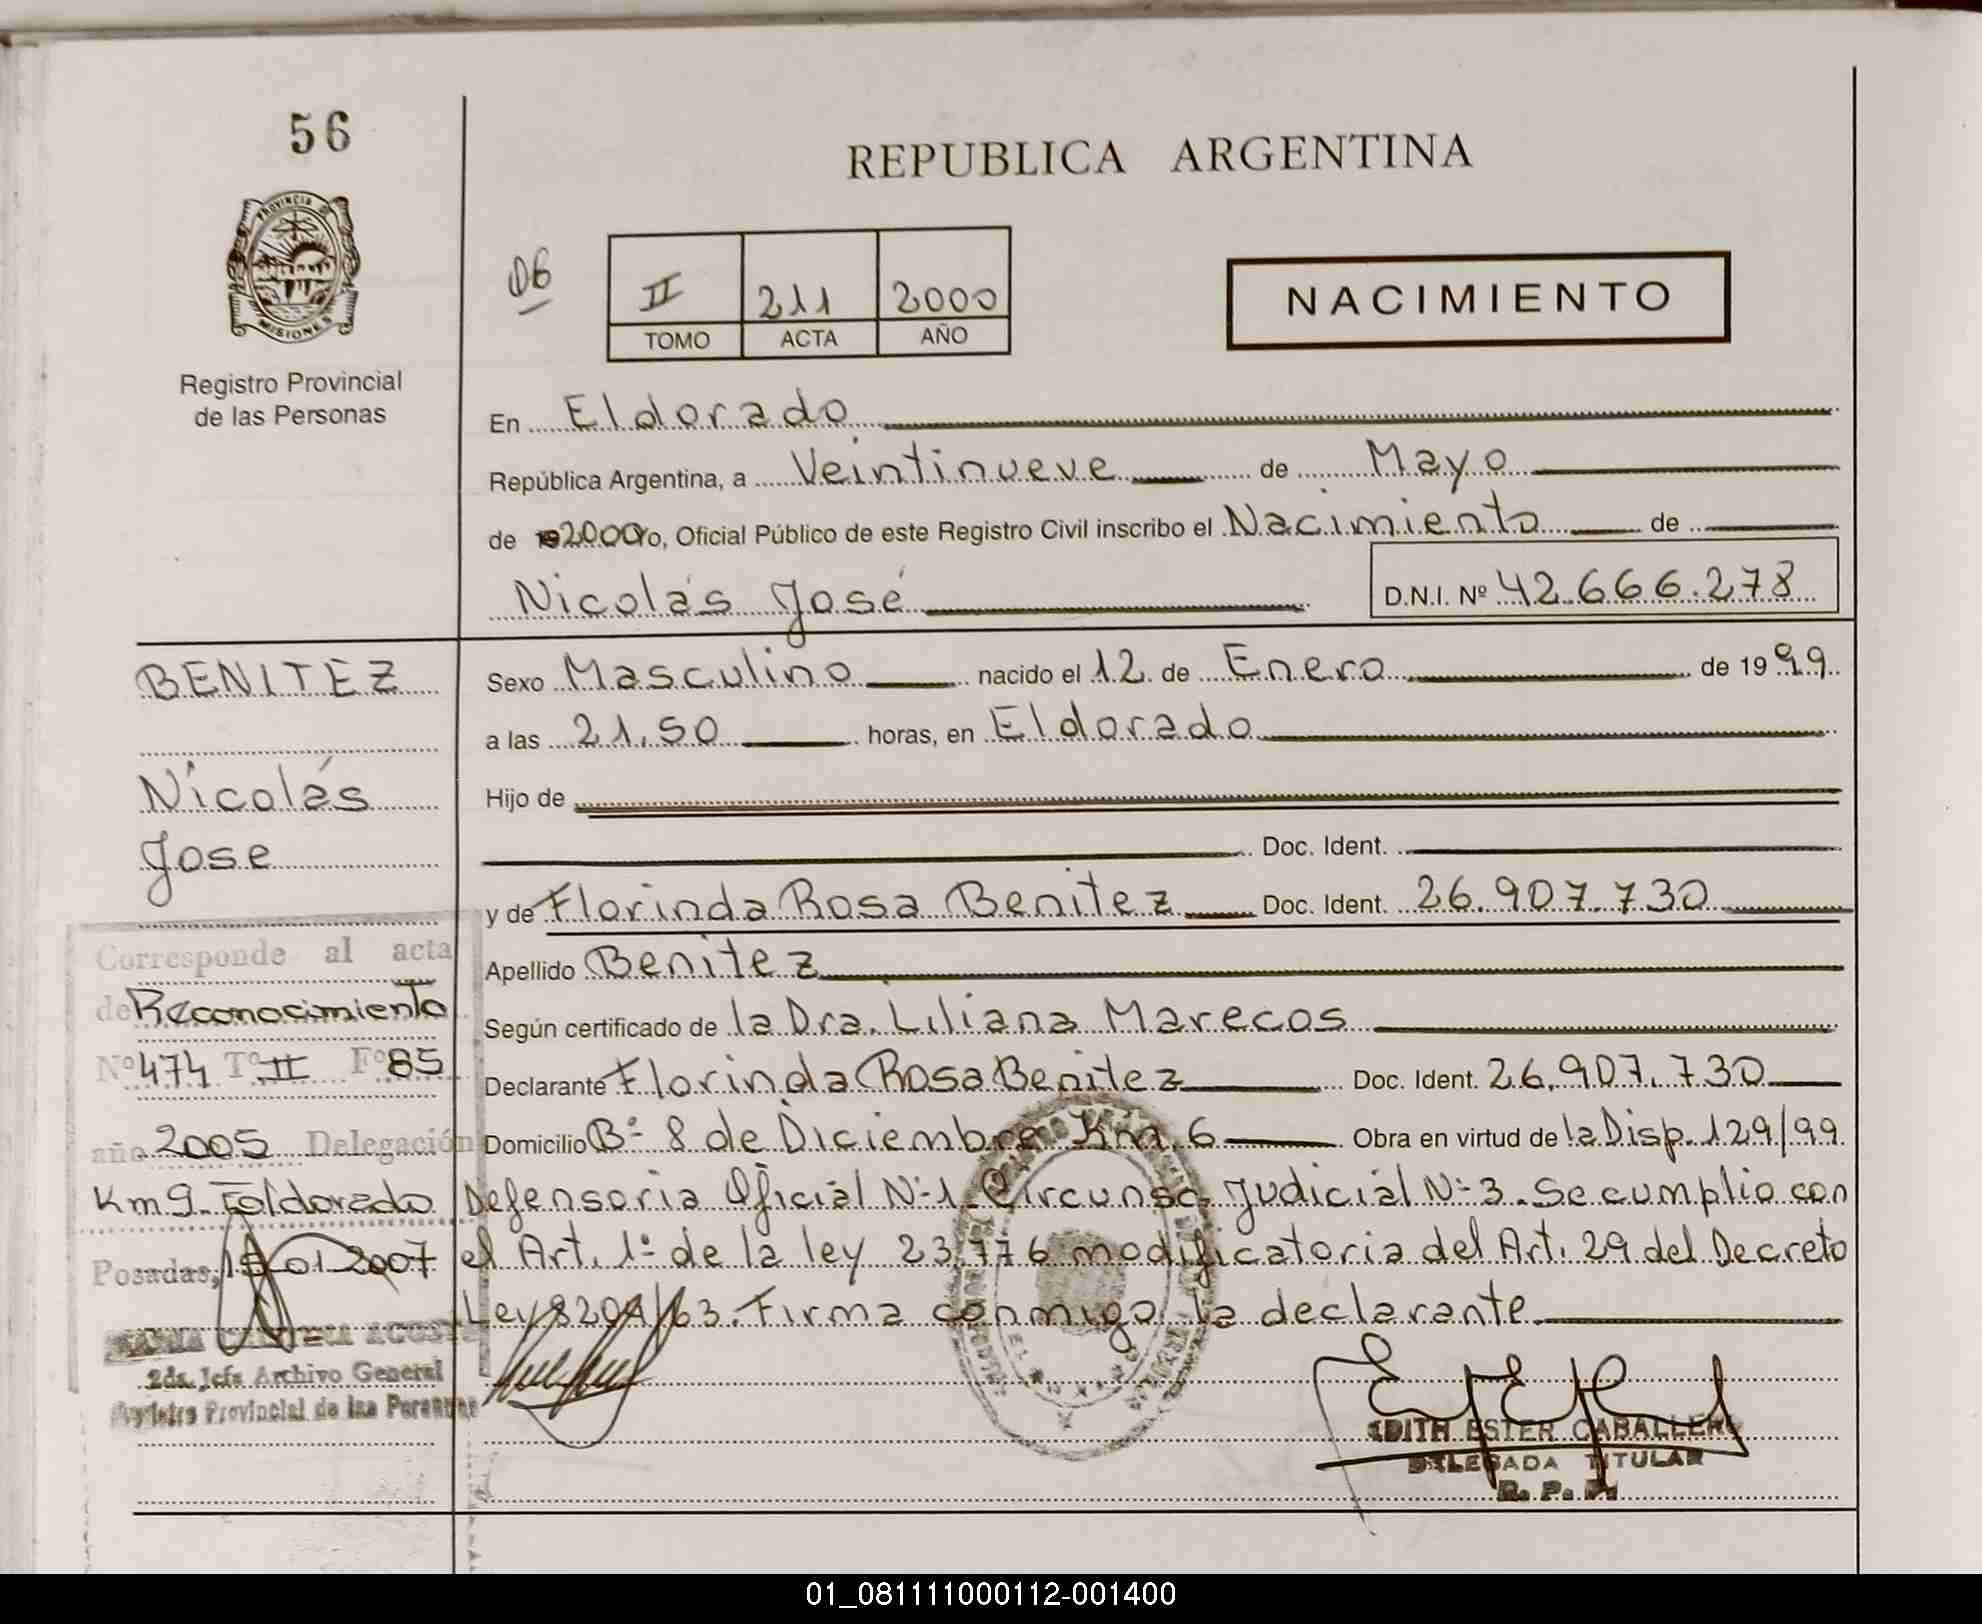 56
REPUBLICA ARGENTINA
PROVINCIA DE
MISIONES
Registro Provincial
de las Personas
06
II 211 2000
TOMO ACTA AÑO
NACIMIENTO
En Eldorado
República Argentina, a Veintinueve de Mayo
de 2000 Yo, Oficial Público de este Registro Civil inscribo el Nacimiento de
Nicolás José
D.N.I. Nº 42.666.278
BENITEZ
Nicolás
Jose
Sexo Masculino nacido el 12 de Enero de 1999
a las 21,50 horas, en Eldorado
Hijo de
Doc. Ident.
y de Florinda Rosa Benitez Doc. Ident. 26.907.730
Apellido Benitez
Según certificado de la Dra. Liliana Marecos
Declarante Florinda Rosa Benitez Doc. Ident. 26.907.730
Domicilio Bº 8 de Diciembre Km 6 Obra en virtud de la Disp. 129/99
Defensoria Oficial Nº 1 Circunsc. Judicial Nº 3. Se cumplio con
el Art. 1º de la ley 23.776 modificatoria del Art. 29 del Decreto
Ley 8204/63. Firma conmigo la declarante
Corresponde al acta
de Reconocimiento
Nº 474 Tº II Fº 85
año 2005 Delegación
Km 9 - Eldorado
Posadas, 15 01 2007
2da. Jefe Archivo General
Registro Provincial de las Personas
EDITH ESTER CABALLERO
DELEGADA TITULAR
R. P. P.
01_081111000112-001400